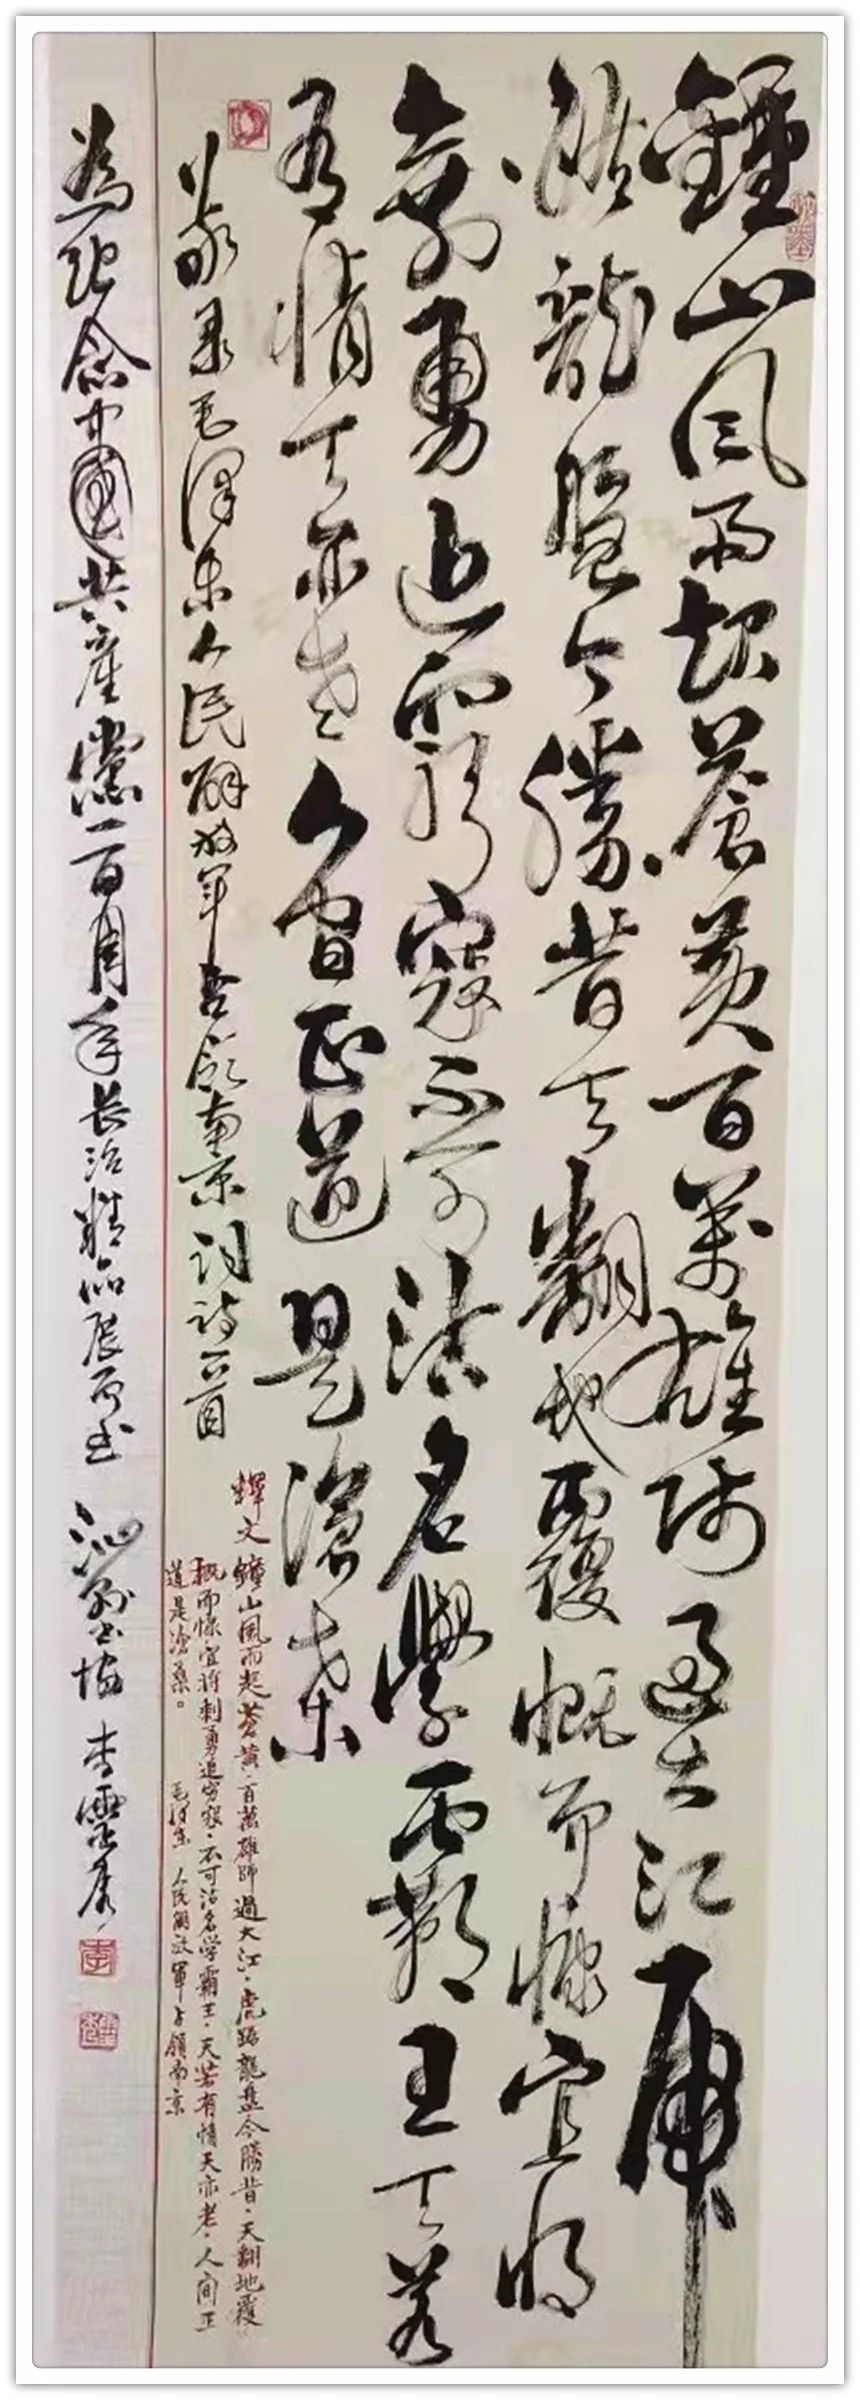 鍾山风雨起蒼黄百萬雄师過大江虎
踞龍盤今勝昔天翻地覆慨而慷宜将
剩勇追窮寇不可沽名學霸王天若
有情天亦老人间正道是滄桑
录毛澤东人民解放军占领南京词诗一首
釋文 鐘山風雨起蒼黄·百萬雄師過大江·虎踞龍盘今勝昔·天翻地覆
概而慷·宜将剩勇追穷寇·不可沽名学霸王·天若有情天亦老·人间正
道是滄桑。 毛泽东 人民解放軍占領南京
為纪念中國共產黨一百周年长治精品展而书 沁县书协 李靈